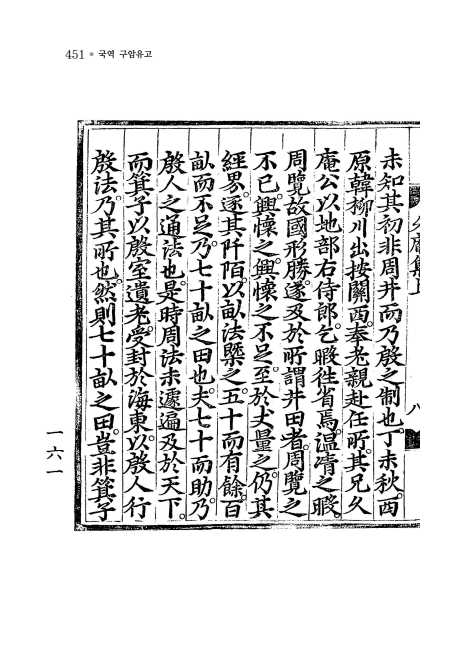 451 ● 국역 구암유고
未知其初非周井而乃殷之制也。丁未秋。西
原韓柳川出按關西。奉老親赴任所。其兄久
庵公以地部右侍郎。乞暇徃省焉。溫凊之暇。
周覽故國形勝。遂及於所謂井田者。周覽之
不已。興懷之。興懷之不足。至於丈量之。仍其
經界。遂其阡陌。以畝法槩之。五十而有餘。百
畝而不足。乃七十畝之田也。夫七十而助。乃
殷人之通法也。是時周法未遽遍及於天下。
而箕子以殷室遺老。受封於海東。以殷人行
殷法。乃其所也。然則七十畝之田。豈非箕子
八
一六一